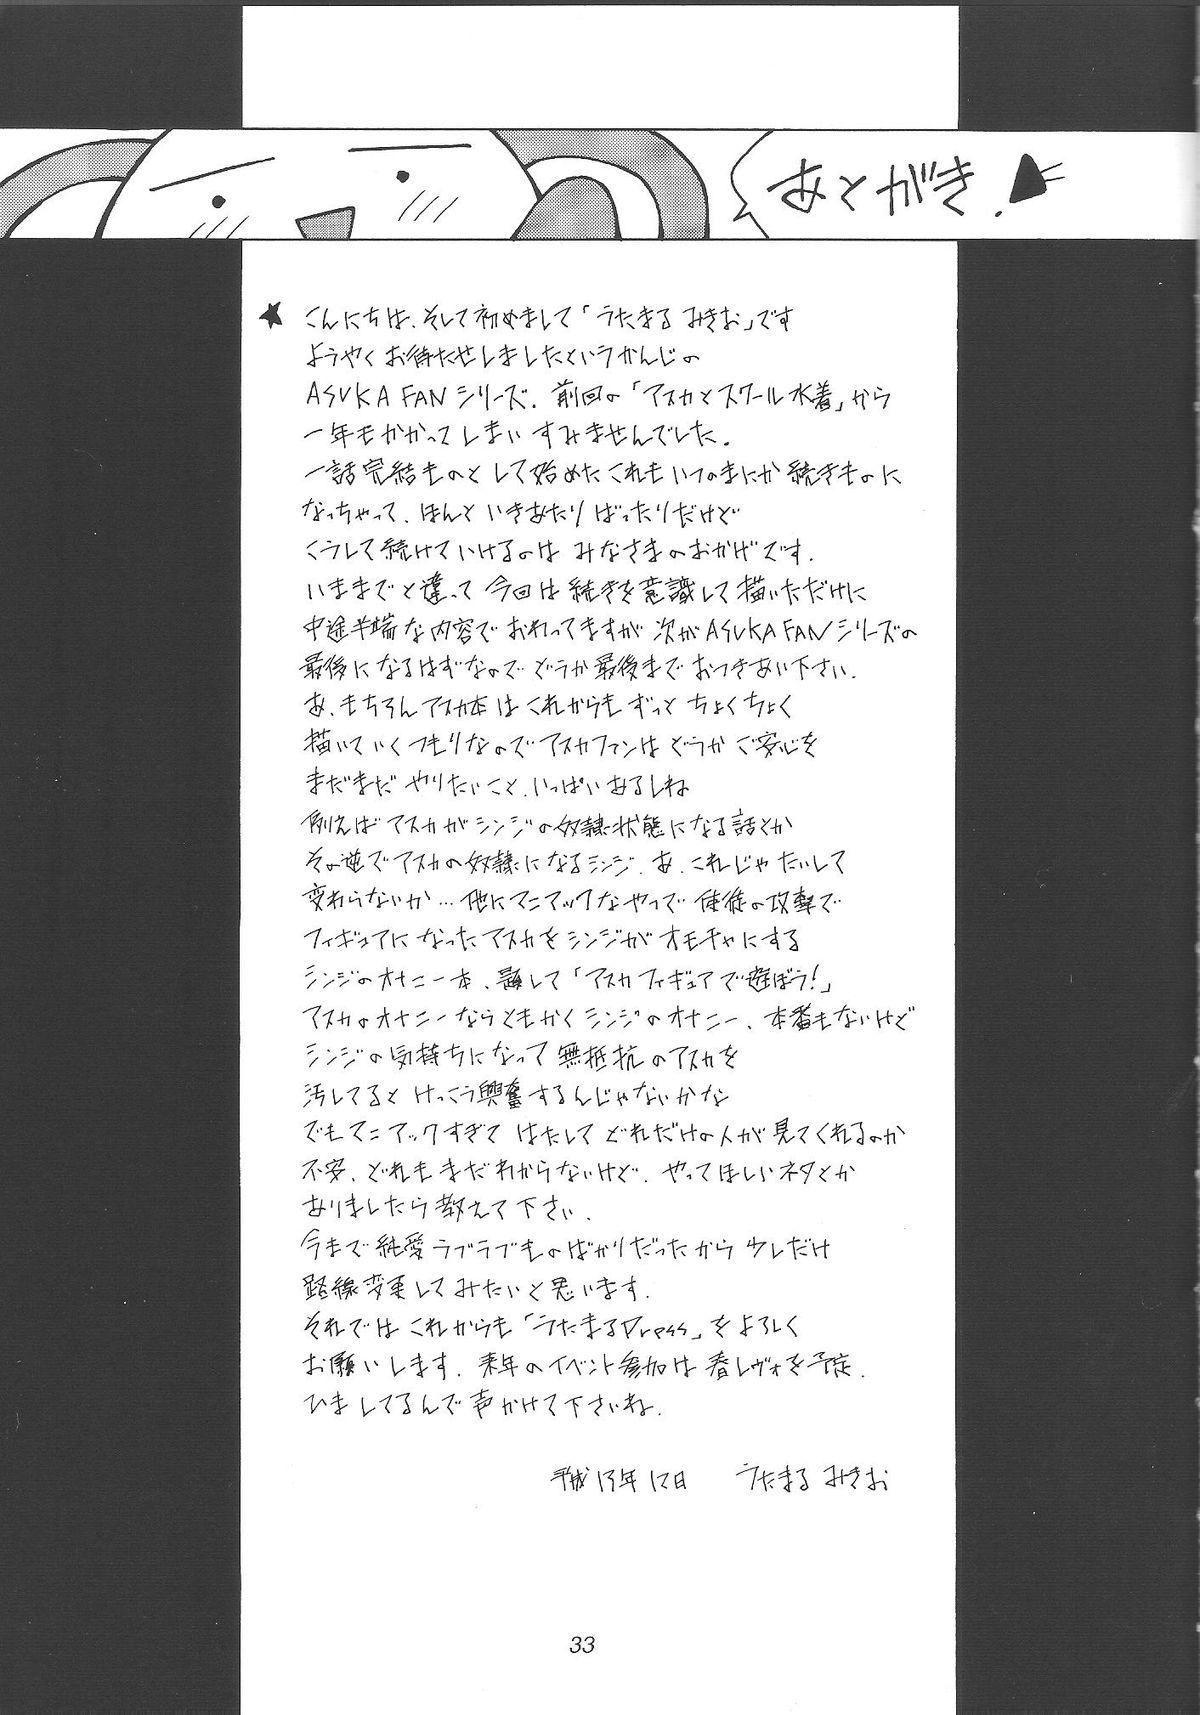 あとがき
★こんにちは、そして初めまして「うたまる みきお」です
ようやくお待たせしましたというかんじの
ASUKA FANシリーズ、前回の「アスカとスクール水着」から
一年もかかってしまい すみませんでした。
一話完結ものとして始めたこれもいつのまにか続きものに
なっちゃって、ほんと いきあたりばったりだけど
こうして続けていけるのは みなさまのおかげです。
いままでと違って今回は続きを意識して描いただけに
中途半端な内容でおわってますが次がASUKA FANシリーズの
最後になるはずなので どうか最後までおつきあい下さい。
あ、もちろんアスカ本はこれからもずっとちょくちょく
描いていくつもりなのでアスカファンはどうかご安心を
まだまだやりたいこと、いっぱいあるしね
例えばアスカがシンジの奴隷状態になる話とか
その逆でアスカの奴隷になるシンジ、あ、これじゃたいして
変わらないか…他にマニアックなやつで使徒の攻撃で
フィギュアになったアスカをシンジがオモチャにする
シンジのオナニー本、題して「アスカフィギュアで遊ぼう!」
アスカのオナニーならともかくシンジのオナニー、本番もないけど
シンジの気持ちになって無抵抗のアスカを
汚してるとけっこう興奮するんじゃないかな
でもマニアックすぎて はたしてどれだけの人が見てくれるのか
不安、どれもまだわからないけど、やってほしいネタとか
ありましたら教えて下さい。
今まで純愛ラブラブものばかりだったから少しだけ
路線変更してみたいと思います。
それではこれからも「うたまるPress」をよろしく
お願いします、来年のイベント参加は春レヴォを予定、
ひましてるんで声かけて下さいね。
平成13年12日 うたまる みきお
33